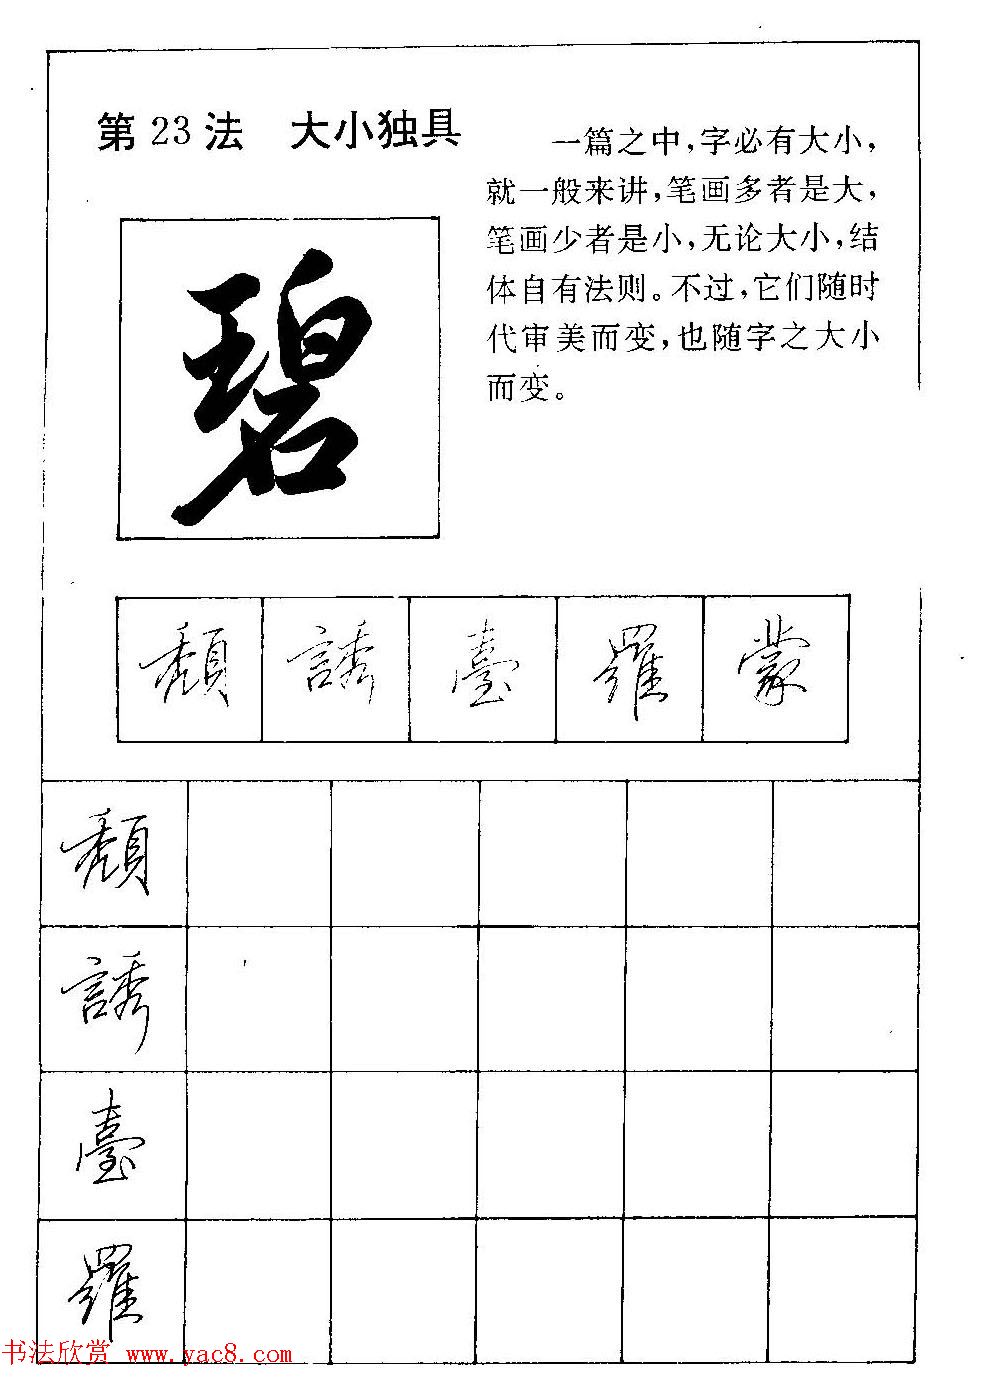 第23法 大小独具
一篇之中,字必有大小,
就一般来讲,笔画多者是大,
笔画少者是小,无论大小,结
体自有法则。不过,它们随时
代审美而变,也随字之大小
而变。
碧
頹 誘 臺 羅 蒙
頹
誘
臺
羅
书法欣赏 www.yac8.com